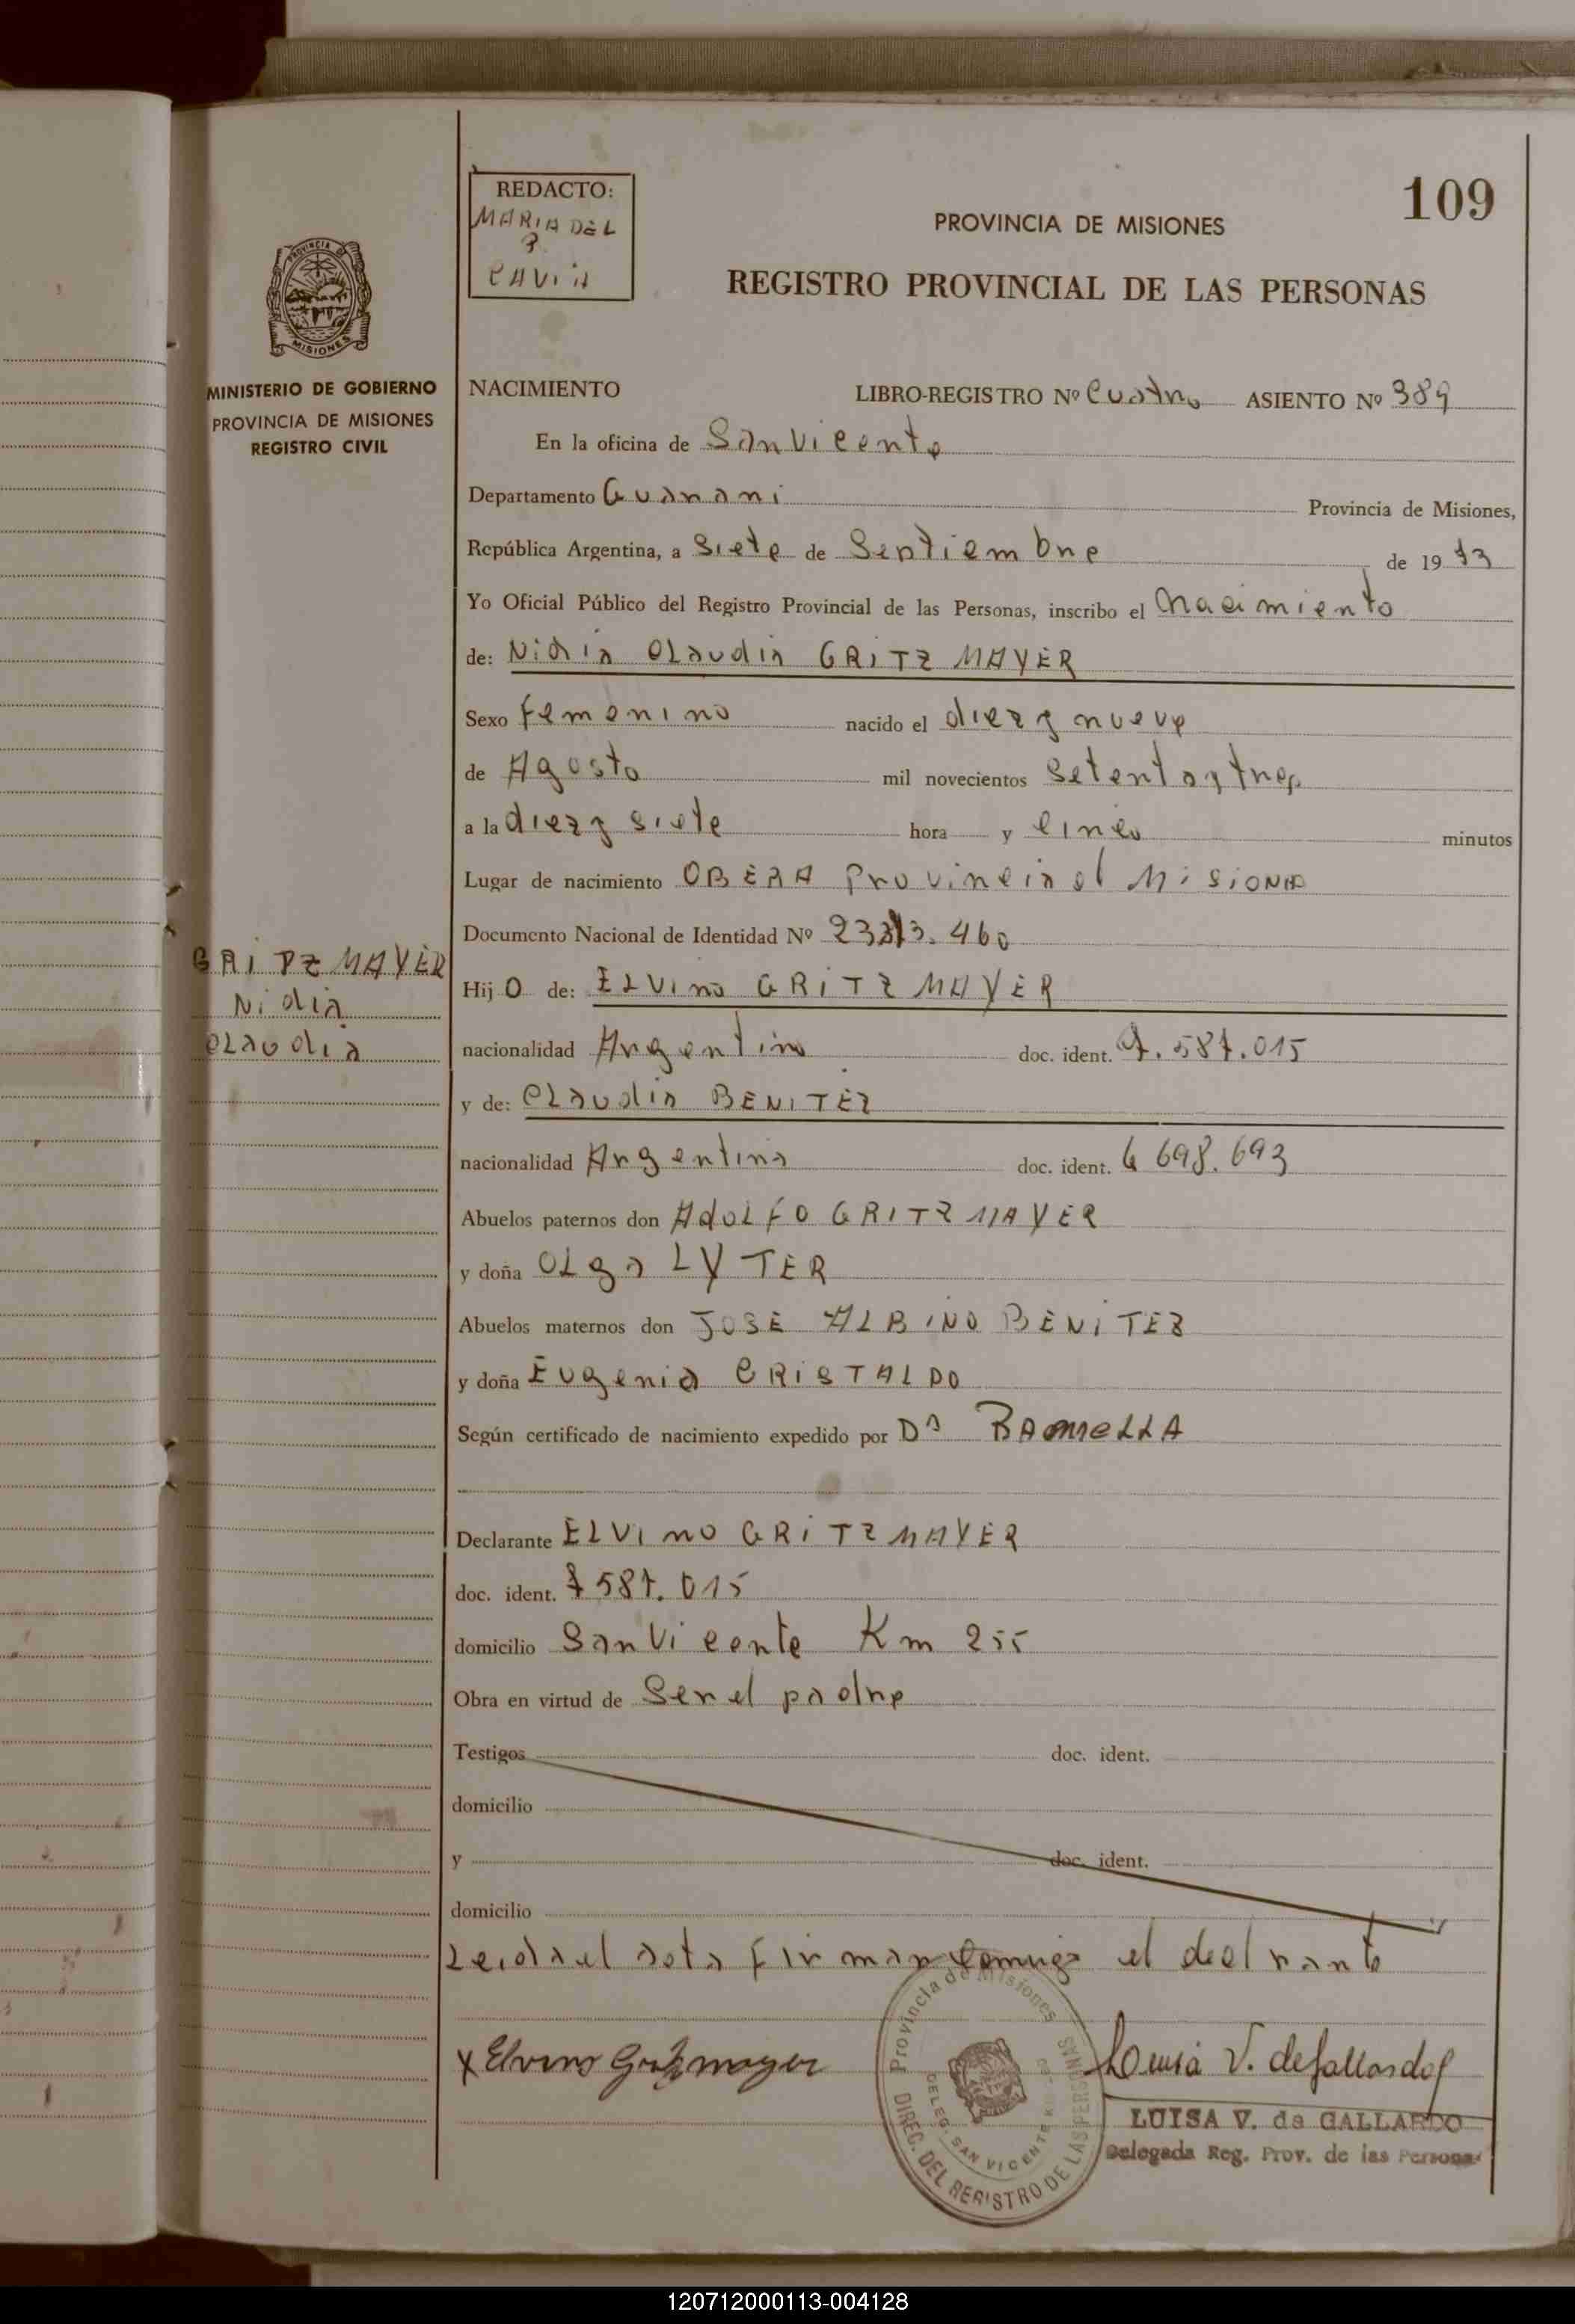 REDACTO:
MARIA DEL
P.
109
PROVINCIA DE MISIONES
REGISTRO PROVINCIAL DE LAS PERSONAS
PROVINCIA
MISIONES
MINISTERIO DE GOBIERNO
PROVINCIA DE MISIONES
REGISTRO CIVIL
NACIMIENTO LIBRO-REGISTRO Nº Cuatro ASIENTO Nº 389
En la oficina de San Vicente
Departamento Guarani Provincia de Misiones,
República Argentina, a Siete de Septiembre de 1973
Yo Oficial Público del Registro Provincial de las Personas, inscribo el Nacimiento
de: Nidia Claudia GRITZMAYER
Sexo femenino nacido el diez y nueve
de Agosto mil novecientos setenta y tres
a la diez y siete hora y cinco minutos
Lugar de nacimiento OBERA Provincia de Misiones
Documento Nacional de Identidad Nº 23313.460
GRITZMAYER
Nidia
Claudia
Hij O de: ELVino GRITZMAYER
nacionalidad Argentino doc. ident. 7.587.015
y de: Claudia BENITEZ
nacionalidad Argentina doc. ident. 6 698.693
Abuelos paternos don ADOLFO GRITZMAYER
y doña OLga LYTER
Abuelos maternos don JOSE ALBINO BENITEZ
y doña Eugenia CRISTALDO
Según certificado de nacimiento expedido por Dª RAMELLA
Declarante ELVINO GRITZMAYER
doc. ident. 7 587.015
domicilio San Vicente Km 255
Obra en virtud de Ser el padre
Testigos doc. ident.
domicilio
y doc. ident.
domicilio
Leida el acta firman conmigo el declrante
x Elvino Gritzmayer
Luisa V. de Gallardo
Provincia de Misiones
DIREC. DEL REGISTRO DE LAS PERSONAS
DELEG. SAN VICENTE
LUISA V. de GALLARDO
Delegada Reg. Prov. de las Personas
120712000113-004128